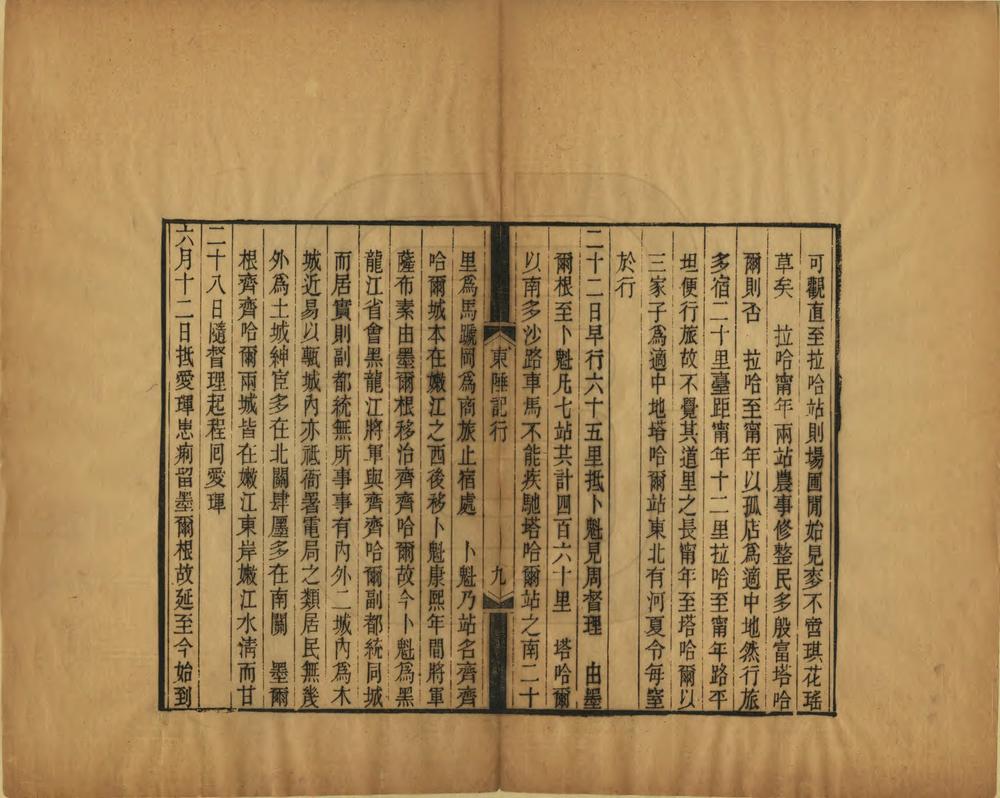 可觀直至拉哈站則場圃閒始見麥不啻琪花瑤
草矣　拉哈甯年兩站農事修整民多殷富塔哈
爾則否　拉哈至甯年以孤店爲適中地然行旅
多宿二十里臺距甯年十二里拉哈至甯年路平
坦便行旅故不覺其道里之長甯年至塔哈爾以
三家子爲適中地塔哈爾站東北有河夏令每窒
於行
二十二日早行六十五里抵卜魁見周督理　由墨
爾根至卜魁凡七站共計四百六十里　塔哈爾
以南多沙路車馬不能疾馳塔哈爾站之南二十
東陲記行　九
里爲馬躐岡爲商旅止宿處　卜魁乃站名齊齊
哈爾城本在嫩江之西後移卜魁康熙年間將軍
薩布素由墨爾根移治齊齊哈爾故今卜魁爲黑
龍江省會黑龍江將軍與齊齊哈爾副都統同城
而居實則副都統無所事事有內外二城內爲木
城近易以甎城內亦祗衙署電局之類居民無幾
外爲土城紳宦多在北關肆廛多在南關　墨爾
根齊齊哈爾兩城皆在嫩江東岸嫩江水淸而甘
二十八日隨督理起程囘愛琿
六月十二日抵愛琿患痢留墨爾根故延至今始到